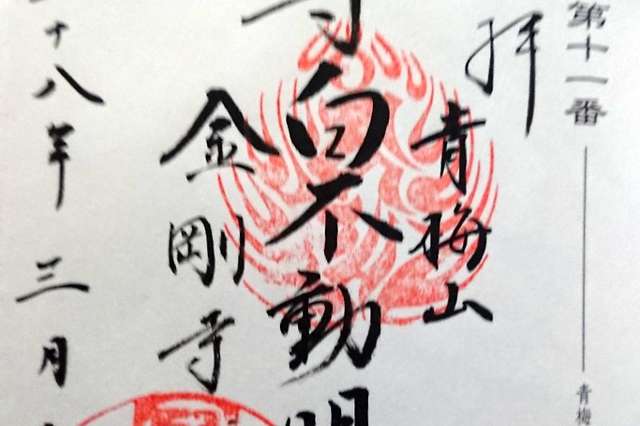 第十一番
青梅
拝
青梅山
白不動明
金剛寺
十八年三月